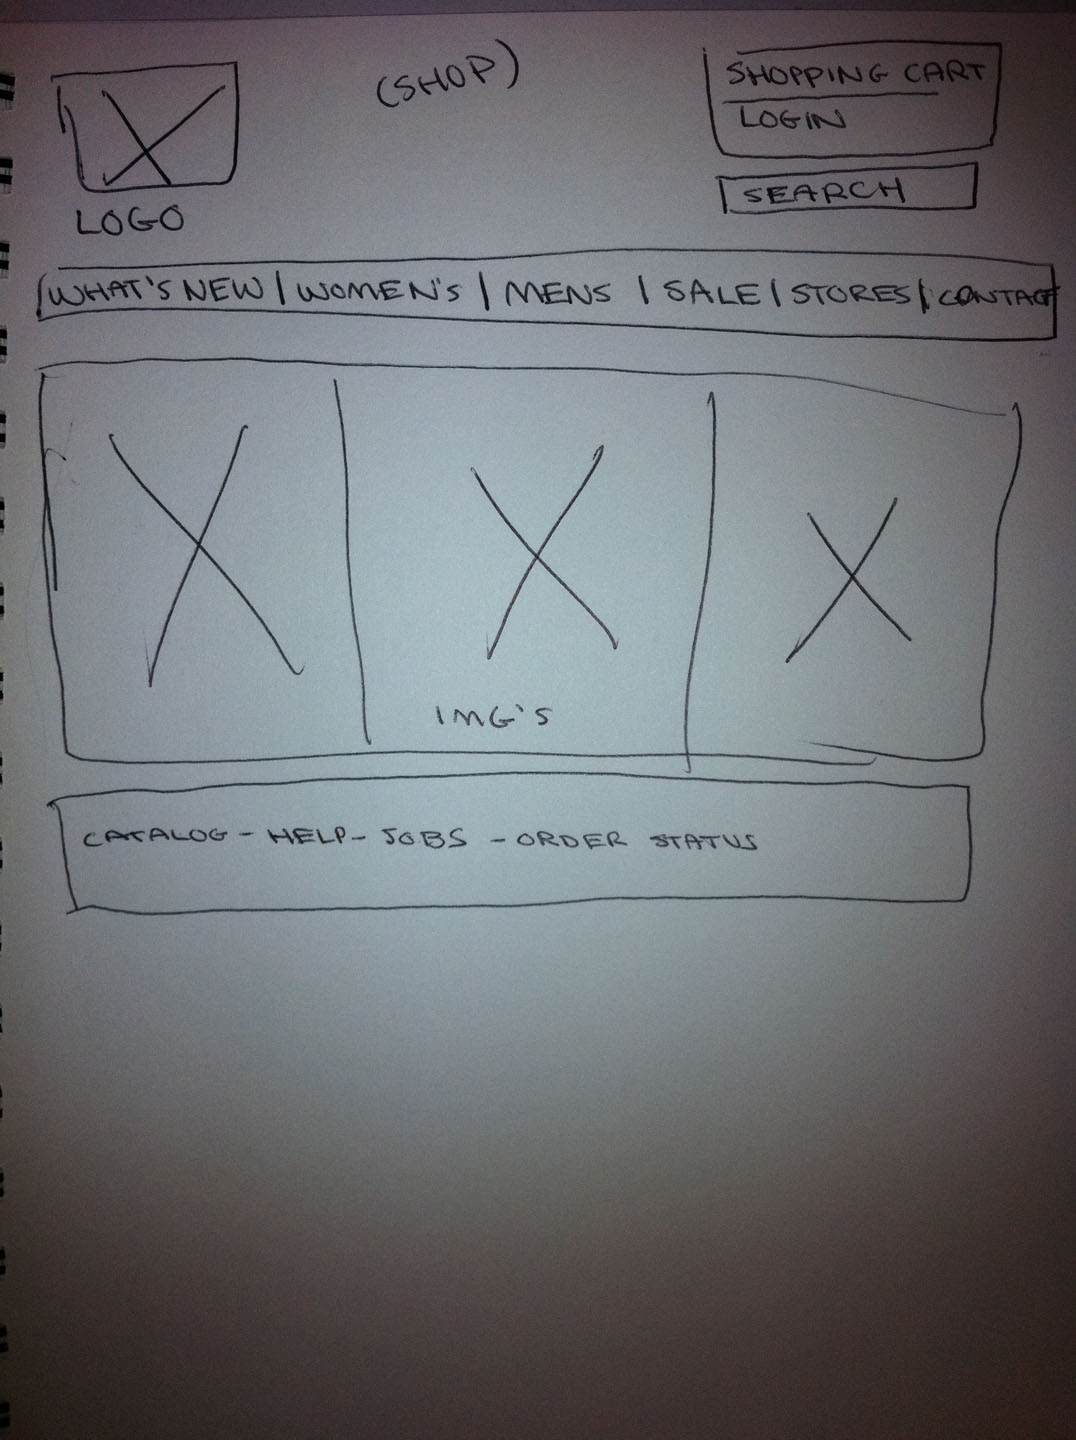 (SHOP)
SHOPPING CART
LOGIN
SEARCH
LOGO
WHAT'S NEW | WOMEN'S | MENS | SALE | STORES | CONTACT
IMG'S
CATALOG - HELP - JOBS - ORDER STATUS